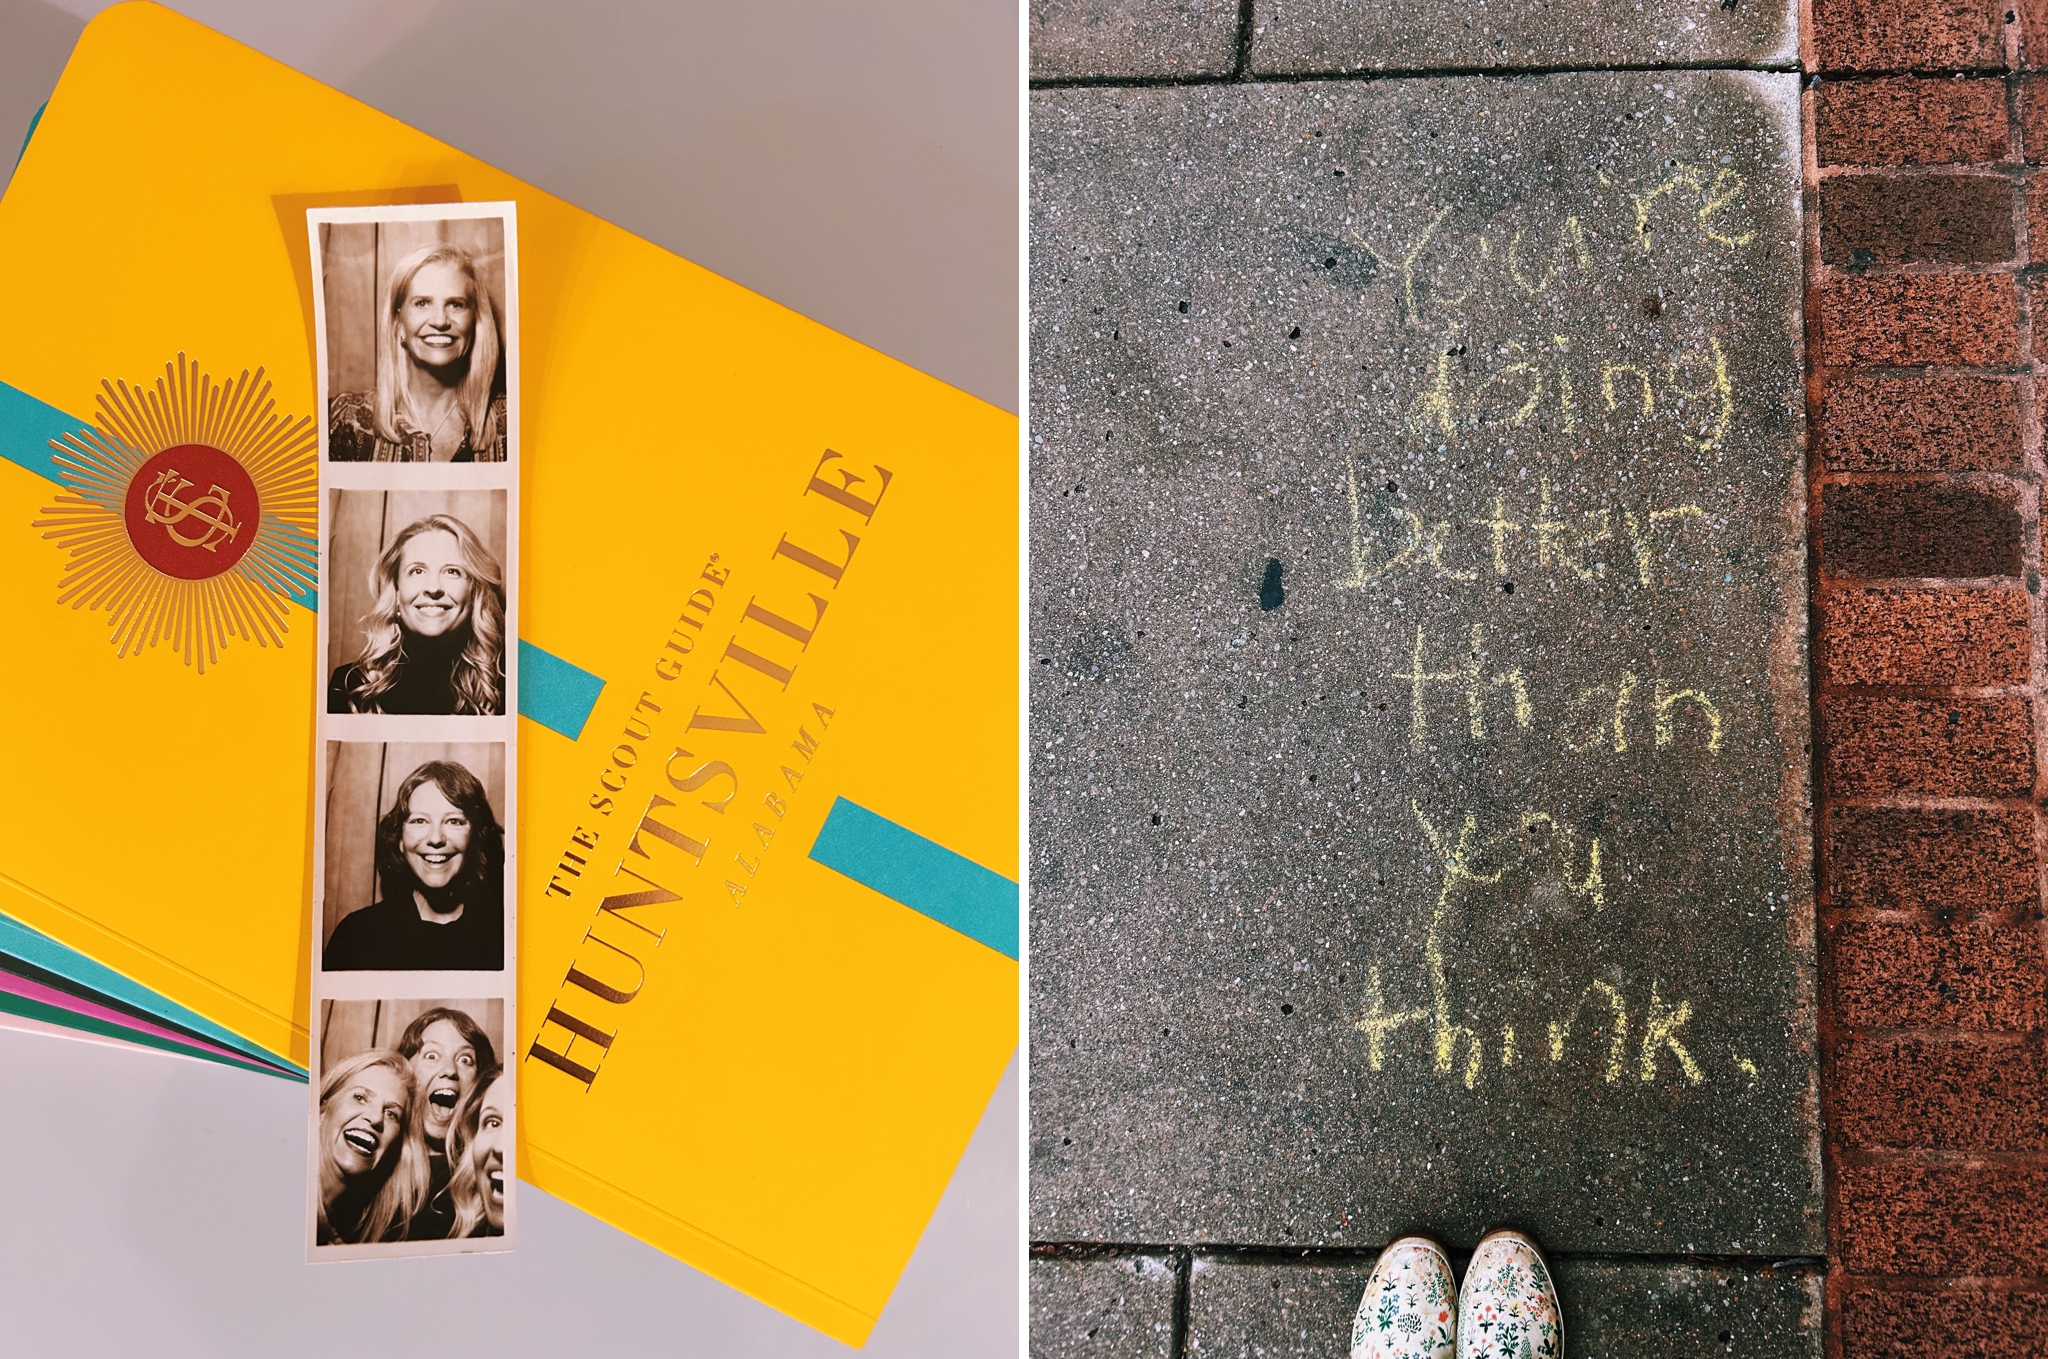 THE SCOUT GUIDE®
HUNTSVILLE
ALABAMA
You're
doing
better
than
you
think.